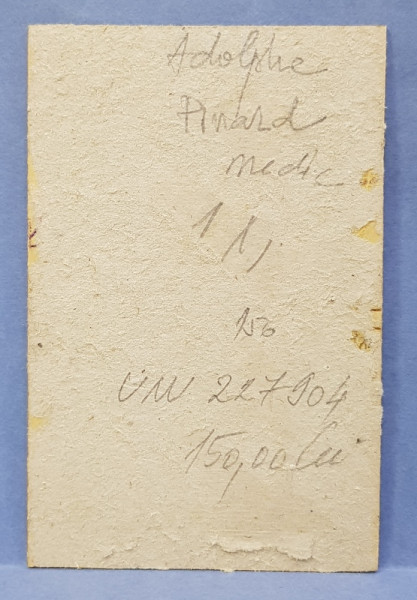 Adolphe
Pinard
medic
1/1,
150
UNU 227904
150,00 lei